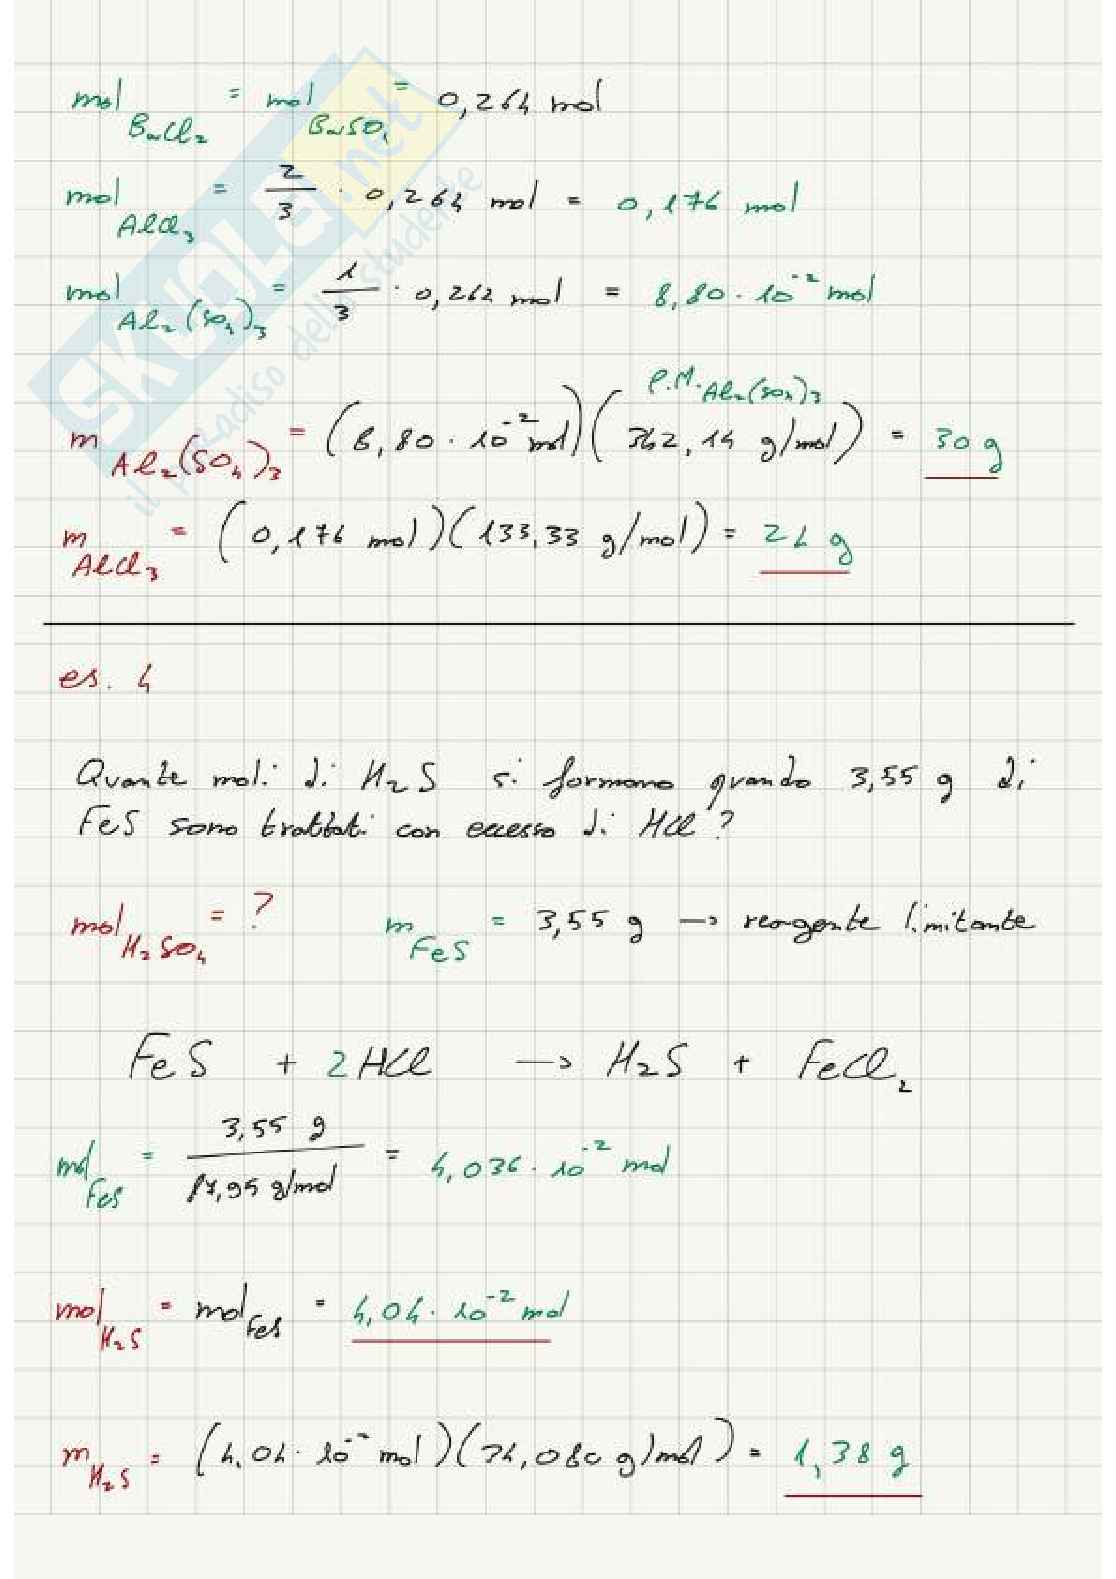 mol BaCl₂ = mol BaSO₄ = 0,264 mol
mol AlCl₃ = 2/3 · 0,264 mol = 0,176 mol
mol Al₂(SO₄)₃ = 1/3 · 0,262 mol = 8,80 · 10⁻² mol
P.M. Al₂(SO₄)₃
m Al₂(SO₄)₃ = (8,80 · 10⁻² mol)(342,14 g/mol) = 30 g
m AlCl₃ = (0,176 mol)(133,33 g/mol) = 24 g
es. 4
Quante moli di H₂S si formano quando 3,55 g di
FeS sono trattati con eccesso di HCl?
mol H₂SO₄ = ? m FeS = 3,55 g → reagente limitante
FeS + 2HCl → H₂S + FeCl₂
mol FeS = 3,55 g / 87,95 g/mol = 4,036 · 10⁻² mol
mol H₂S = mol FeS = 4,04 · 10⁻² mol
m H₂S = (4,04 · 10⁻² mol)(34,080 g/mol) = 1,38 g
SKUOLA.net
il paradiso dello studente